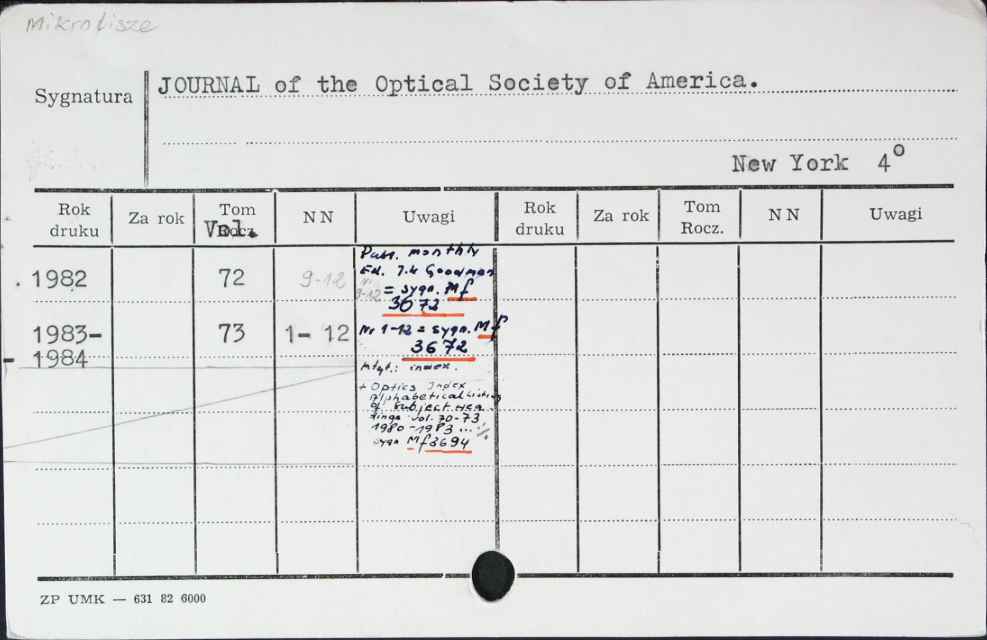 Mikrofisze
Sygnatura
JOURNAL of the Optical Society of America.
New York 4°
Rok druku Za rok Tom Rocz. Vol. NN Uwagi Rok druku Za rok Tom Rocz. NN Uwagi
1982 72 9-12
Publ. monthly
Ed. J.W Goodman
Nr 9-12 = sygn. Mf
3672
1983- 73 1- 12
1984
Nr 1-12 = sygn. Mf
3672
index.
+ Optics Index
Alphabetical Listing
of Subject Hea
dings Vol. 70-73
1980-1983 ...
sygn Mf3694
ZP UMK — 631 82 6000